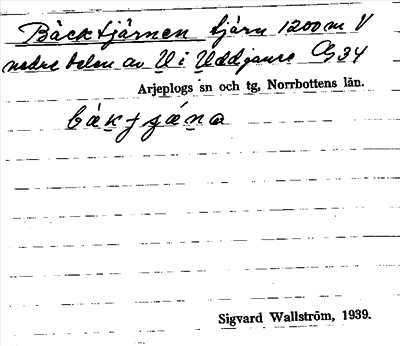 Bäcktjärnen tjärn 1200 m V
nedre delen av U i Uddjaure Gg 34
Arjeplogs sn och tg, Norrbottens län.
Sigvard Wallström, 1939.